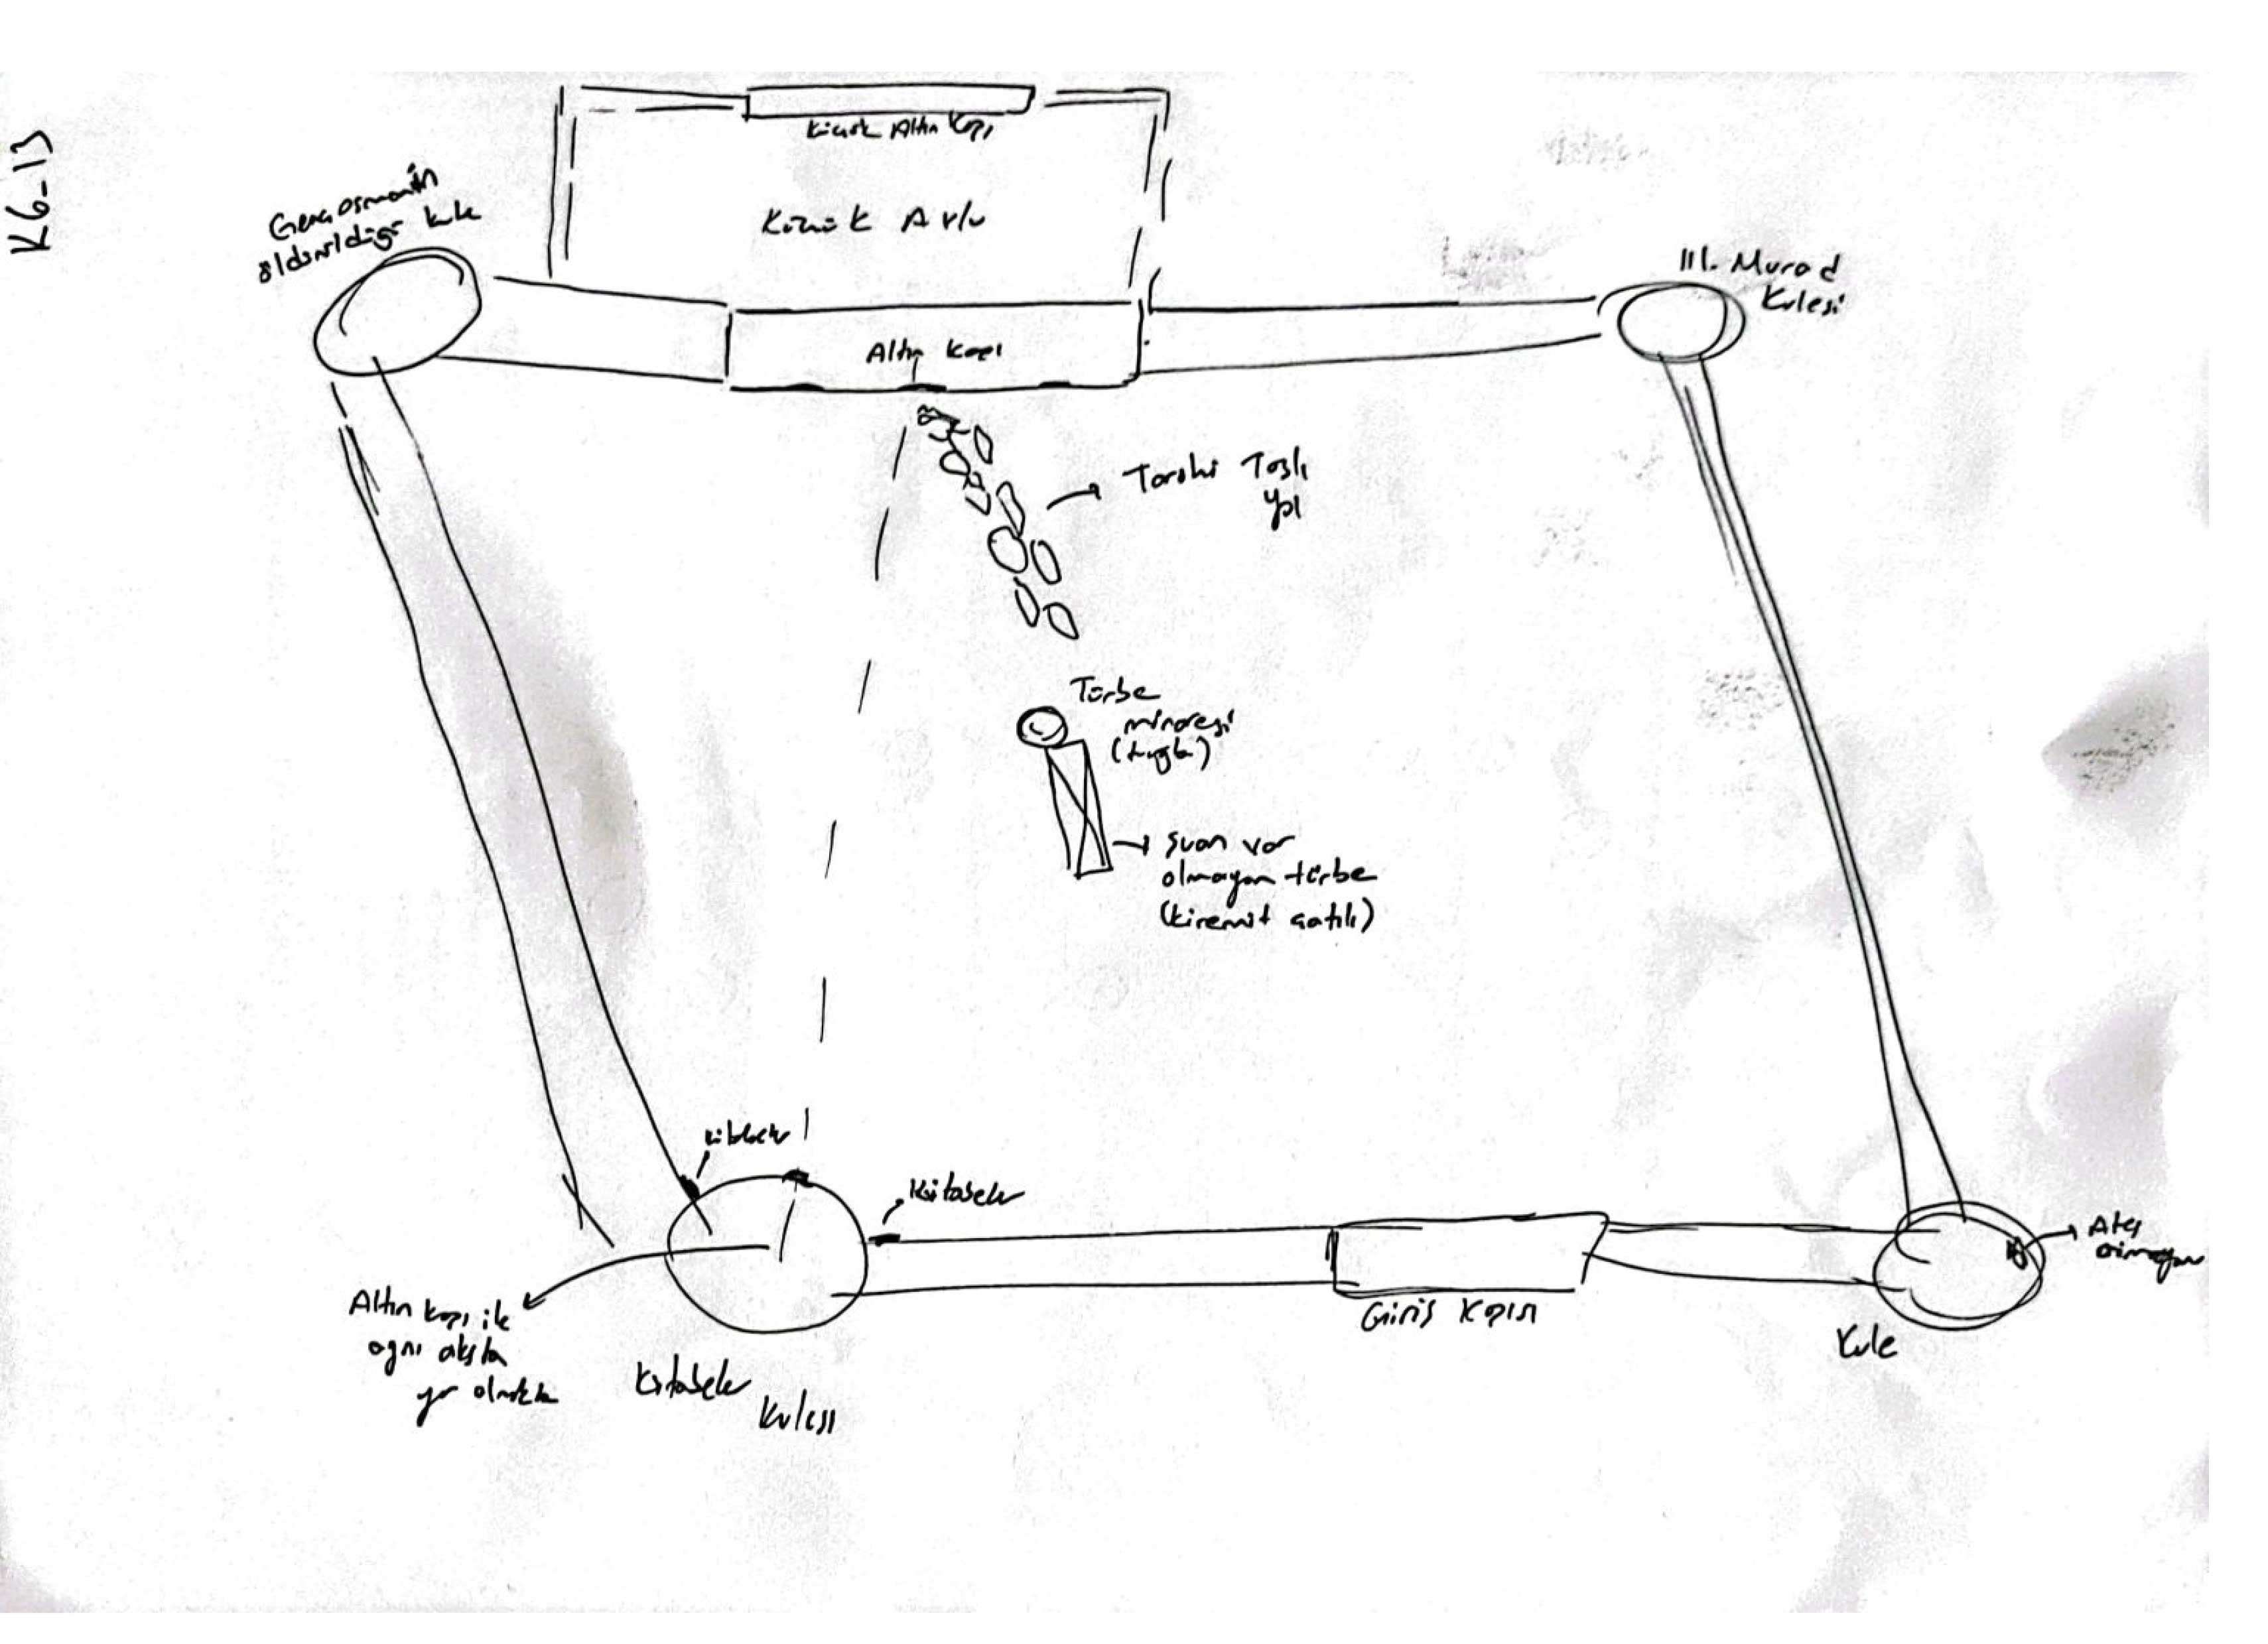 K6-13
Küçük Altın Kapı
Küçük Avlu
Genç Osmanın
öldürüldüğü kule
III. Murad
Kulesi
Altın Kapı
Tarihi Taşlı
yol
Türbe
minaresi
(tuğla)
şuan var
olmayan türbe
(kiremit çatılı)
kitabeler
Kitabeler
Altın kapı ile
aynı aksta
yer almakta
Kitabeler
Kulesi
Giriş Kapısı
Kule
Ateş